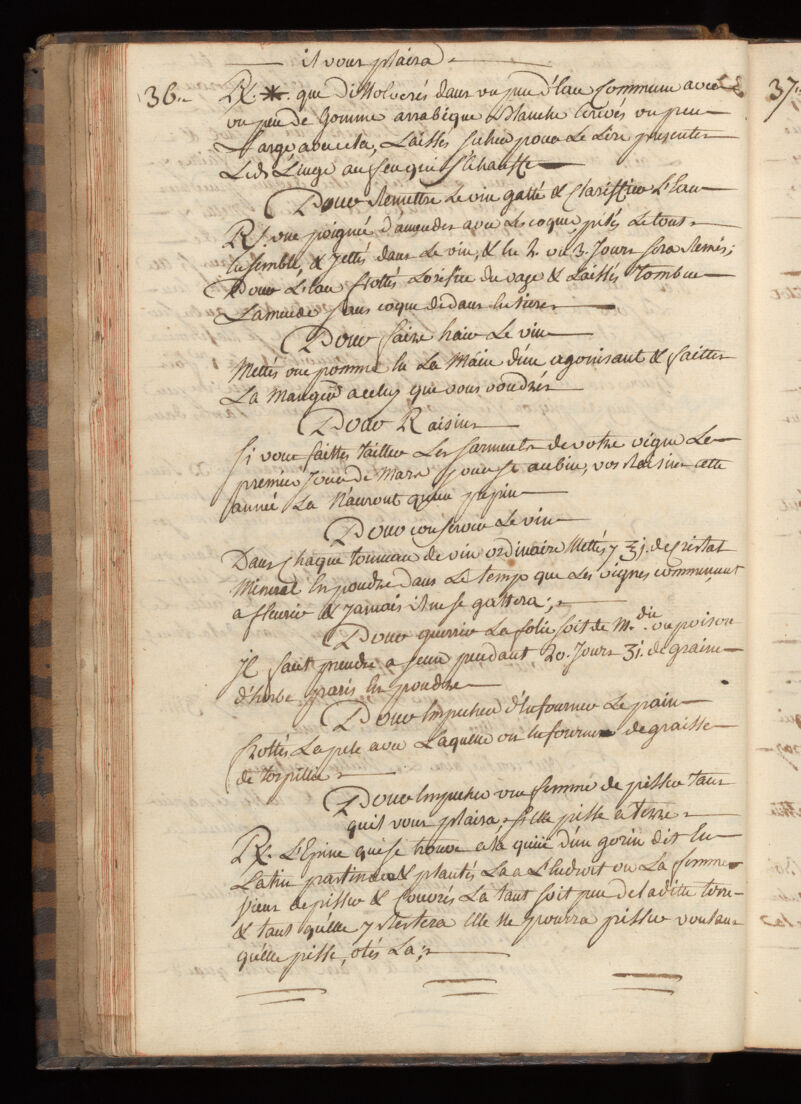 il vous plaira
36.. Rx * . que dissolverés dans un peu d'Eau commune avec
un peu de gomme arrabique blanche
avec cela, Laisses secher pour Le Lire presentes
Led. Linge au feu qui s'Ehauffe
Pour Remettre Le vin gatté & Clariffier L'Eau
Rx. une poignée d'amendes avec Les coque, pilés Le tout
Ensemble, & Jettés dans Le vin, & En 2. ou 3. Jours sera Remis;
Pour L'Eau frottés du vase & Laissés Tomber
L'amende sans coque dedans
Pour faire hair Le vin
Mettés une pomme En La Main d'un agonisant & faittes
La Manger a celuy que vous voudrés
Pour Raisins
Si vous faittes tailler Les sarments de votre vigne Le
premier Jour de Mars Jour St. aubin, vos Raisins cette
année La N'auront qu'un pepin
Pour conserver Le vin
Dans Chaque tonneau de vin ordinaire Mettés y ʒj. de Cristal
Mineral En poudre dans Le temp que Les vignes commencent
a fleurir & Jamais il ne se gattera;
Pour guerrir La folie soit de M.die ou poison
Il faut prendre a Jeun pendant 20. Jours ʒj. de graine
d'herbe paris En poudre
Pour Empecher d'Enfourner Le pain
frottés La pele avec Laquelle on Enfourne de graisse
de torpille
Pour Empecher une femme de pisser tant
qu'il vous plaira, si Elle pisse a terre
Rx. L'Epine qui se trouve a la d'un dit En
Latin & plantés La a L'Endroit ou La femme
vient de pisser & Couvrés La tant soit peu de laditte terre
& tant qu'elle y Restera Elle Ne pourra pisser voulant
qu'elle pisse, otés La;
37